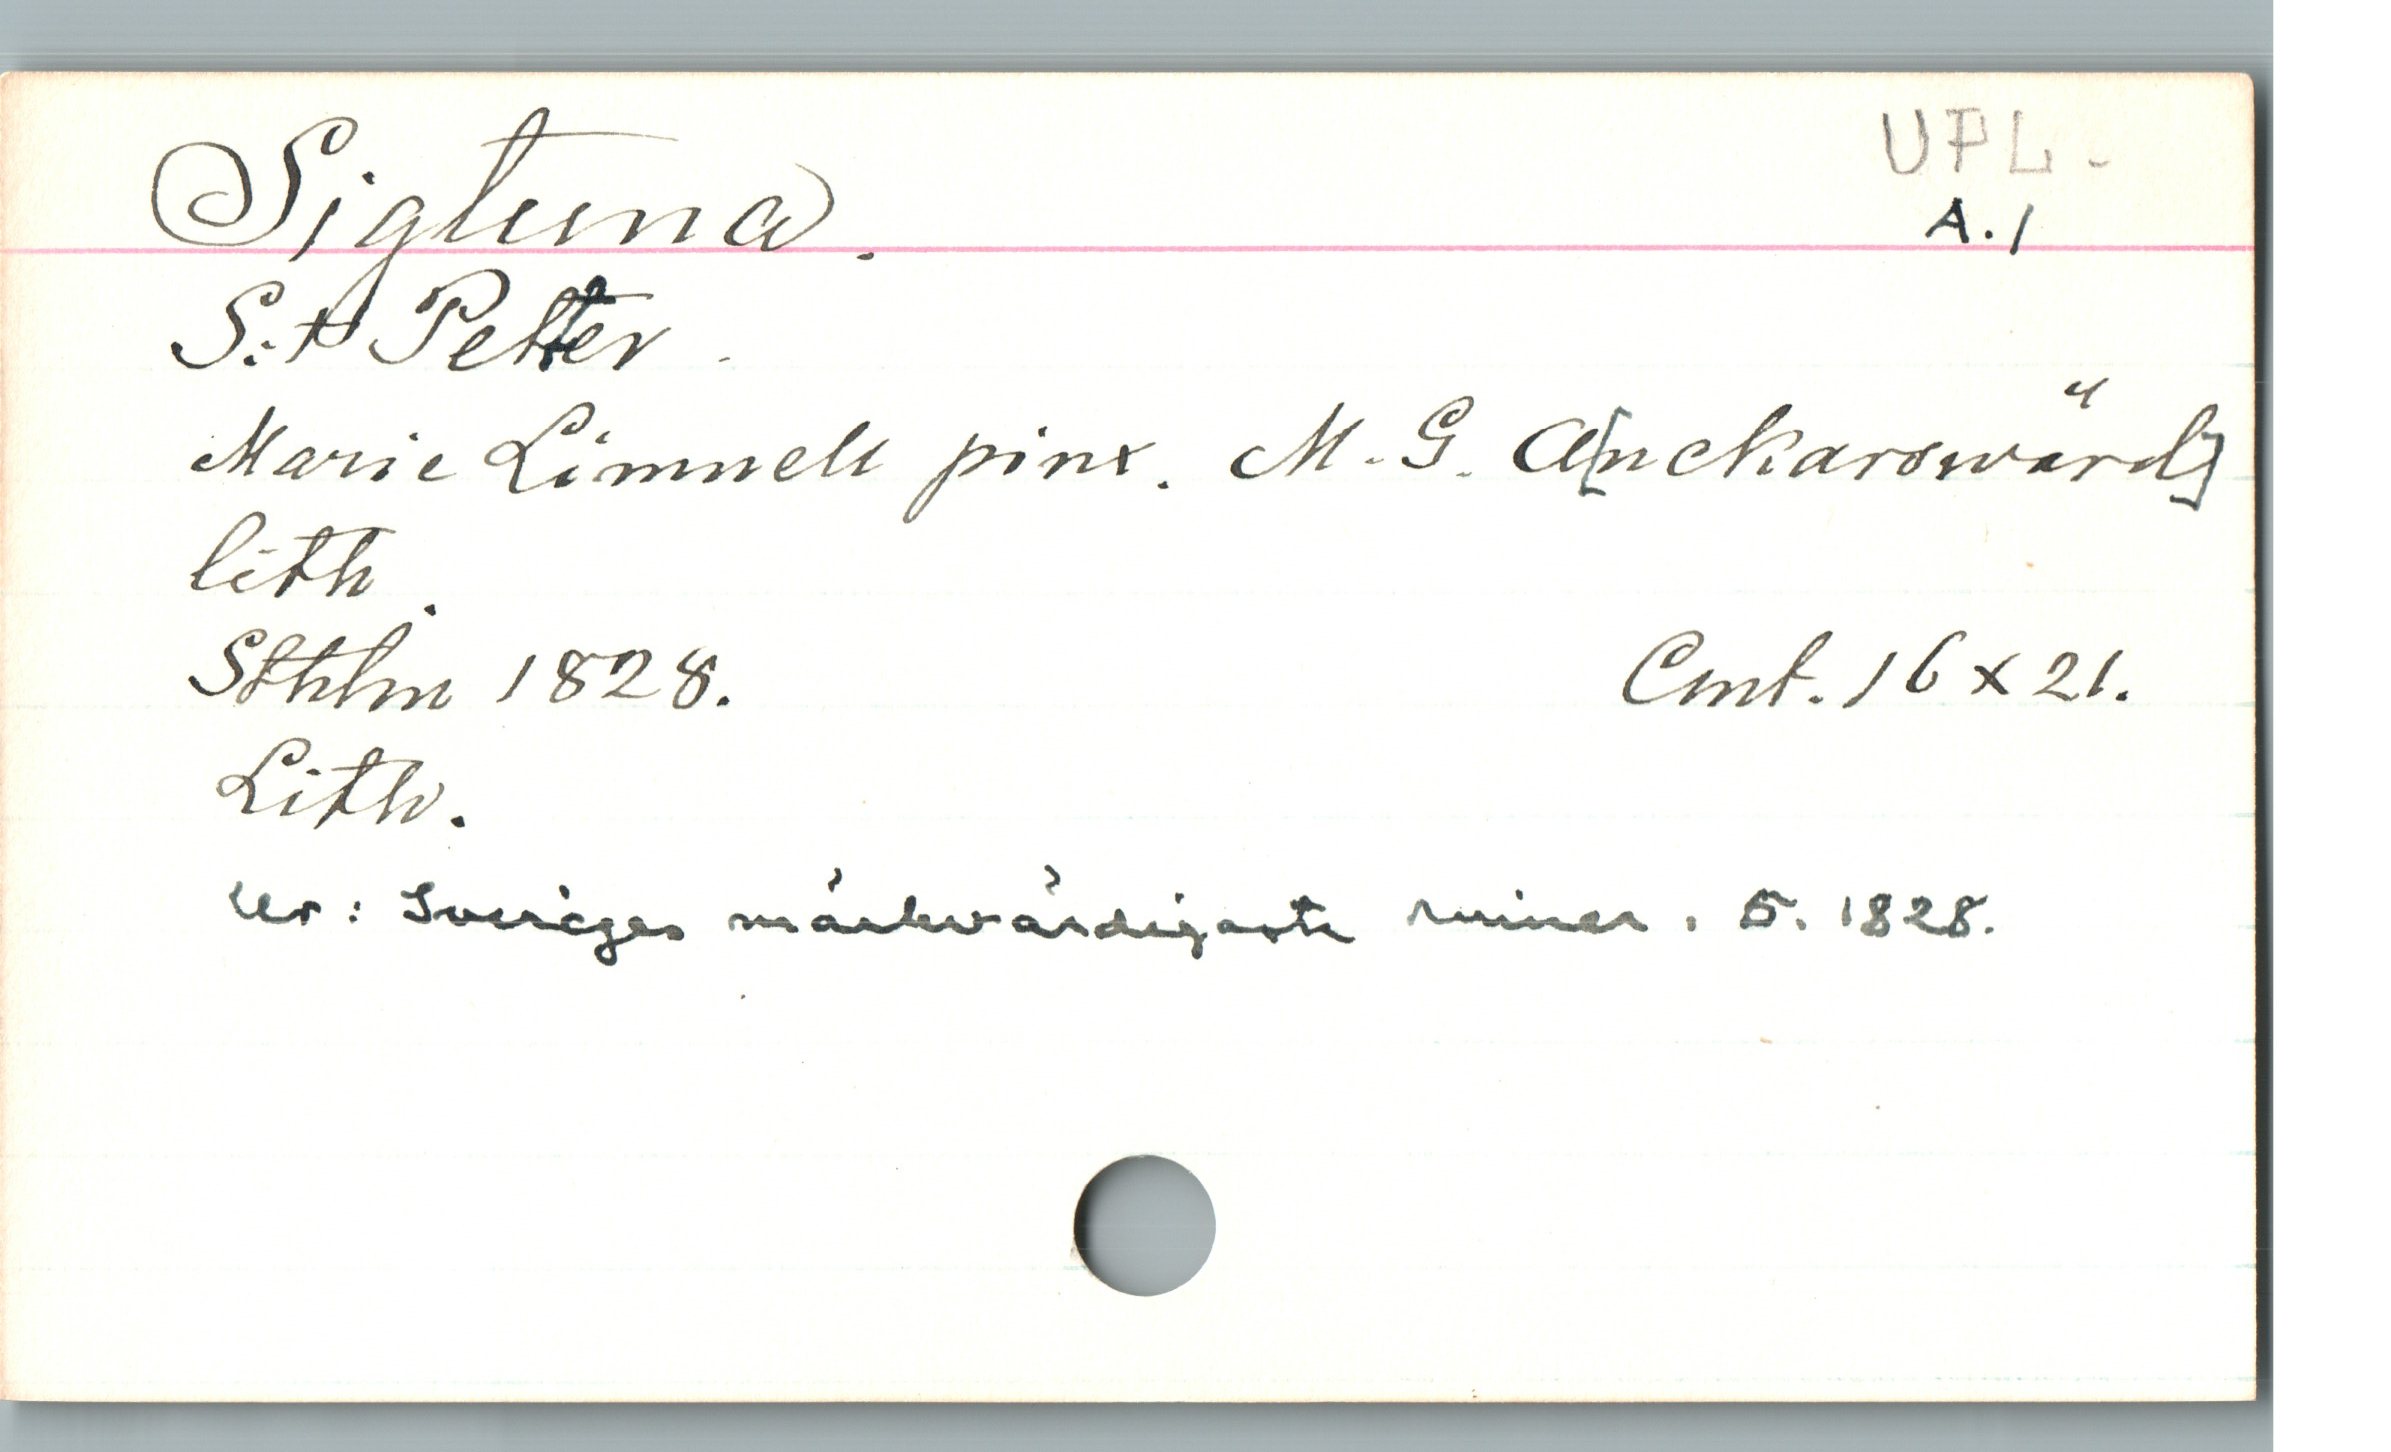 Sigtuna.
UPL.
A.1
S:t Petter
Marie Limnell pinx. M. G. A[nckarswärd]
lith.
Sthlm 1828. Cmt. 16 x 21.
Lith.
Ur: Sveriges märkvärdigaste ruiner. 5. 1828.